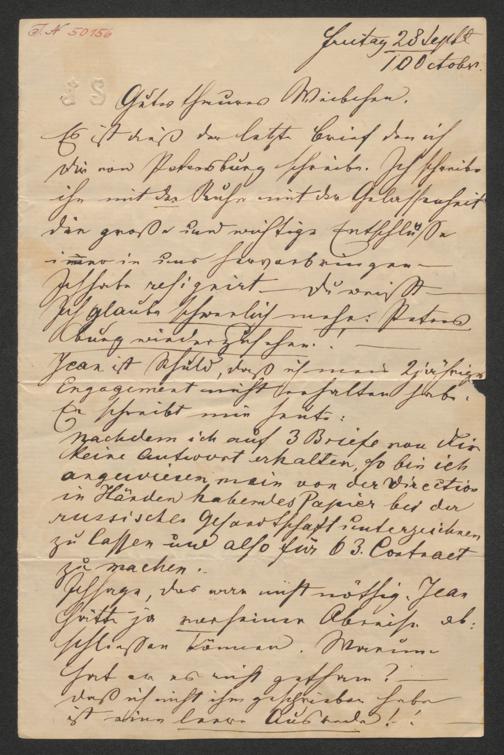 I.N 50156
Freitag 28 Sept
10 October.
JS
Gutes theures Weibchen.
Es ist dieß der letzte Brief den ich
Dir von Petersburg schreibe. Ich schreibe
ihn mit der Ruhe mit der Gelassenheit
die große und wichtige Entschlüße
immer in uns hervorbringen –
Ich habe resignirt – Du weißt –
Ich glaube schwerlich mehr: Peters
burg wiederzusehen! –
Jean ist Schuld, daß ich mein 2jähriges
Engagement nicht erhalten habe.
Er schreibt mir heute:
Nachdem ich auf 3 Briefe von Dir
keine Antwort erhalten, so bin ich
angewiesen, mein von der Direction
in Händen habendes Papier bei der
russischen Gesandtschaft unterzeichnen
zu lassen und also für 63. Contract
zu machen.
Ich sage, das war nicht nöthig. Jean
hätte ja vor seiner Abreise ab:
schließen können. Warum
hat er es nicht gethan? –
daß ich nicht ihm geschrieben habe
ist eine leere Ausrede!!